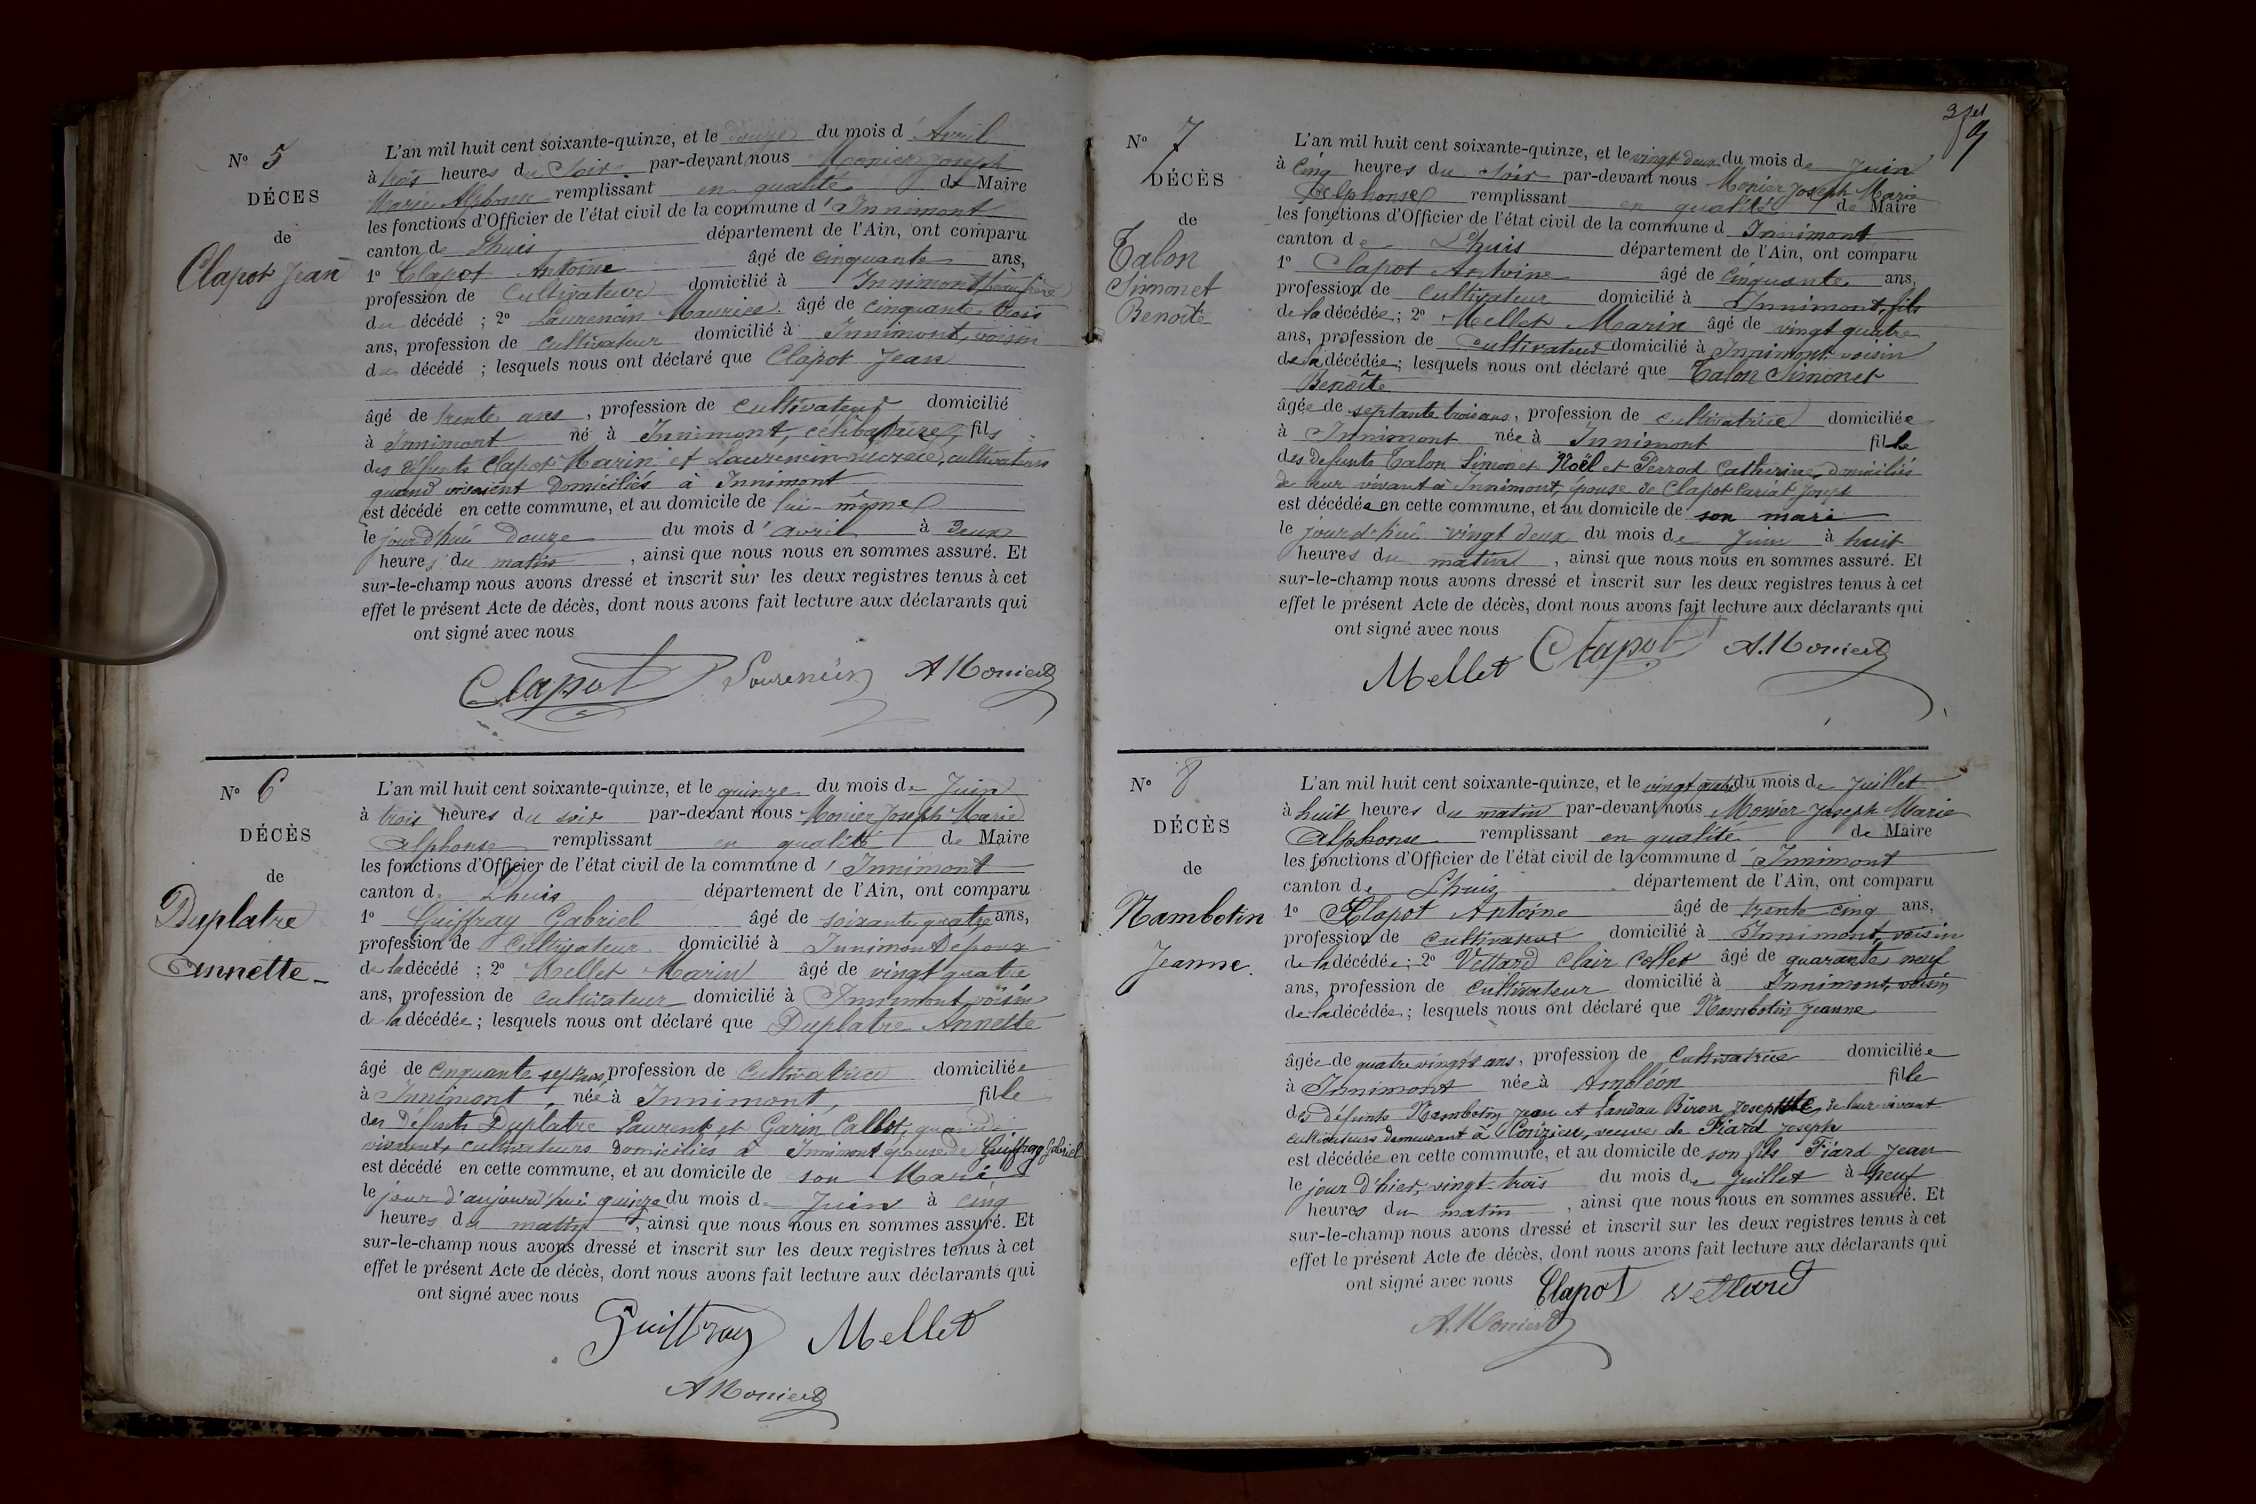 N° 5
DÉCES
de
Clapot Jean
L'an mil huit cent soixante-quinze, et le douze du mois d'Avril
à trois heures du Soir par-devant nous Monier Joseph
Marie Alphonse remplissant en qualité de Maire
les fonctions d'Officier de l'état civil de la commune d'Innimont
canton de Lhuis département de l'Ain, ont comparu
1° Clapot Antoine âgé de cinquante ans,
profession de Cultivateur domicilié à Innimont
du décédé ; 2° Laurencin Mauries âgé de cinquante trois
ans, profession de cultivateur domicilié à Innimont, voisin
du décédé ; lesquels nous ont déclaré que Clapot Jean
âgé de trente ans, profession de cultivateur domicilié
à Innimont né à Innimont, célibataire, fils
des défunts Clapot Marin et Laurencin cultivateurs
quand vivaient domiciliés à Innimont
est décédé en cette commune, et au domicile de lui-même
le jourd'hui douze du mois d'avril à deux
heures du matin, ainsi que nous nous en sommes assuré. Et
sur-le-champ nous avons dressé et inscrit sur les deux registres tenus à cet
effet le présent Acte de décès, dont nous avons fait lecture aux déclarants qui
ont signé avec nous
Clapot Lourencin A Monier
N° 6
DÉCÈS
de
Duplatre
Annette
L'an mil huit cent soixante-quinze, et le quinze du mois de Juin
à trois heures du soir par-devant nous Monier Joseph Marie
Alphonse remplissant en qualité de Maire
les fonctions d'Officier de l'état civil de la commune d'Innimont
canton de Lhuis département de l'Ain, ont comparu
1° Guiffray Gabriel âgé de soixante quatre ans,
profession de Cultivateur domicilié à Innimont Epoux
de la décédé ; 2° Mellet Marin âgé de vingt quatre
ans, profession de cultivateur domicilié à Innimont voisin
de la décédée ; lesquels nous ont déclaré que Duplatre Annette
âgé de cinquante sept ans, profession de Cultivatrice domiciliée
à Innimont, née à Innimont, fille
des Défunts Duplatre Laurent et Garin Callet, quand
vivants cultivateurs domiciliés à Innimont épouse de Guiffray Gabriel
est décédé en cette commune, et au domicile de son Mari
le jour d'aujourd'hui quinze du mois de Juin à cinq
heures du matin, ainsi que nous nous en sommes assuré. Et
sur-le-champ nous avons dressé et inscrit sur les deux registres tenus à cet
effet le présent Acte de décès, dont nous avons fait lecture aux déclarants qui
ont signé avec nous
Guiffray Mellet
A Monier
N° 7
DÉCÈS
de
Talon
Simonet
Benoite
L'an mil huit cent soixante-quinze, et le vingt deux du mois de Juin
à cinq heures du soir par-devant nous Monier Joseph Marie
Delphonse remplissant en qualité de Maire
les fonctions d'Officier de l'état civil de la commune d Innimont
canton de Lhuis département de l'Ain, ont comparu
1° Clapot Antoine âgé de cinquante ans,
profession de cultivateur domicilié à Innimont, fils
de la décédée ; 2° Mellet Marin âgé de vingt quatre
ans, profession de cultivateur domicilié à Innimont voisin
de la décédée ; lesquels nous ont déclaré que Talon Simonet
Benoite
âgée de septante trois ans, profession de cultivatrice domiciliée
à Innimont née à Innimont fille
des défunts Talon Simonet Noël et Perrod Catherine domiciliés
de leur vivant à Innimont, épouse de Clapot Cariat Joseph
est décédée en cette commune, et au domicile de son mari
le jourd'hui vingt deux du mois de Juin à huit
heures du matin, ainsi que nous nous en sommes assuré. Et
sur-le-champ nous avons dressé et inscrit sur les deux registres tenus à cet
effet le présent Acte de décès, dont nous avons fait lecture aux déclarants qui
ont signé avec nous
Mellet Clapot A. Monier
N° 8
DÉCÈS
de
Nambotin
Jeanne
L'an mil huit cent soixante-quinze, et le vingt quatre du mois de Juillet
à huit heures du matin par-devant nous Monier Joseph Marie
Alphonse remplissant en qualité de Maire
les fonctions d'Officier de l'état civil de la commune d'Innimont
canton de Lhuis département de l'Ain, ont comparu
1° Clapot Antoine âgé de trente cinq ans,
profession de cultivateur domicilié à Innimont, voisin
de la décédée ; 2° Vettard Clair Collet âgé de quarante neuf
ans, profession de cultivateur domicilié à Innimont, voisin
de la décédée ; lesquels nous ont déclaré que Nambotin Jeanne
âgée de quatre vingts ans, profession de Cultivatrice domiciliée
à Innimont née à Ambléon fille
des défunts Nambotin Jean et Landau Biron Josephte, de leur vivant
cultivateurs demeurant à Conzieu, veuve de Fiard Joseph
est décédée en cette commune, et au domicile de son fils Fiard Jean
le jour d'hier, vingt-trois du mois de Juillet à neuf
heures du matin, ainsi que nous nous en sommes assuré. Et
sur-le-champ nous avons dressé et inscrit sur les deux registres tenus à cet
effet le présent Acte de décès, dont nous avons fait lecture aux déclarants qui
ont signé avec nous Clapot Vettard
A. Monier